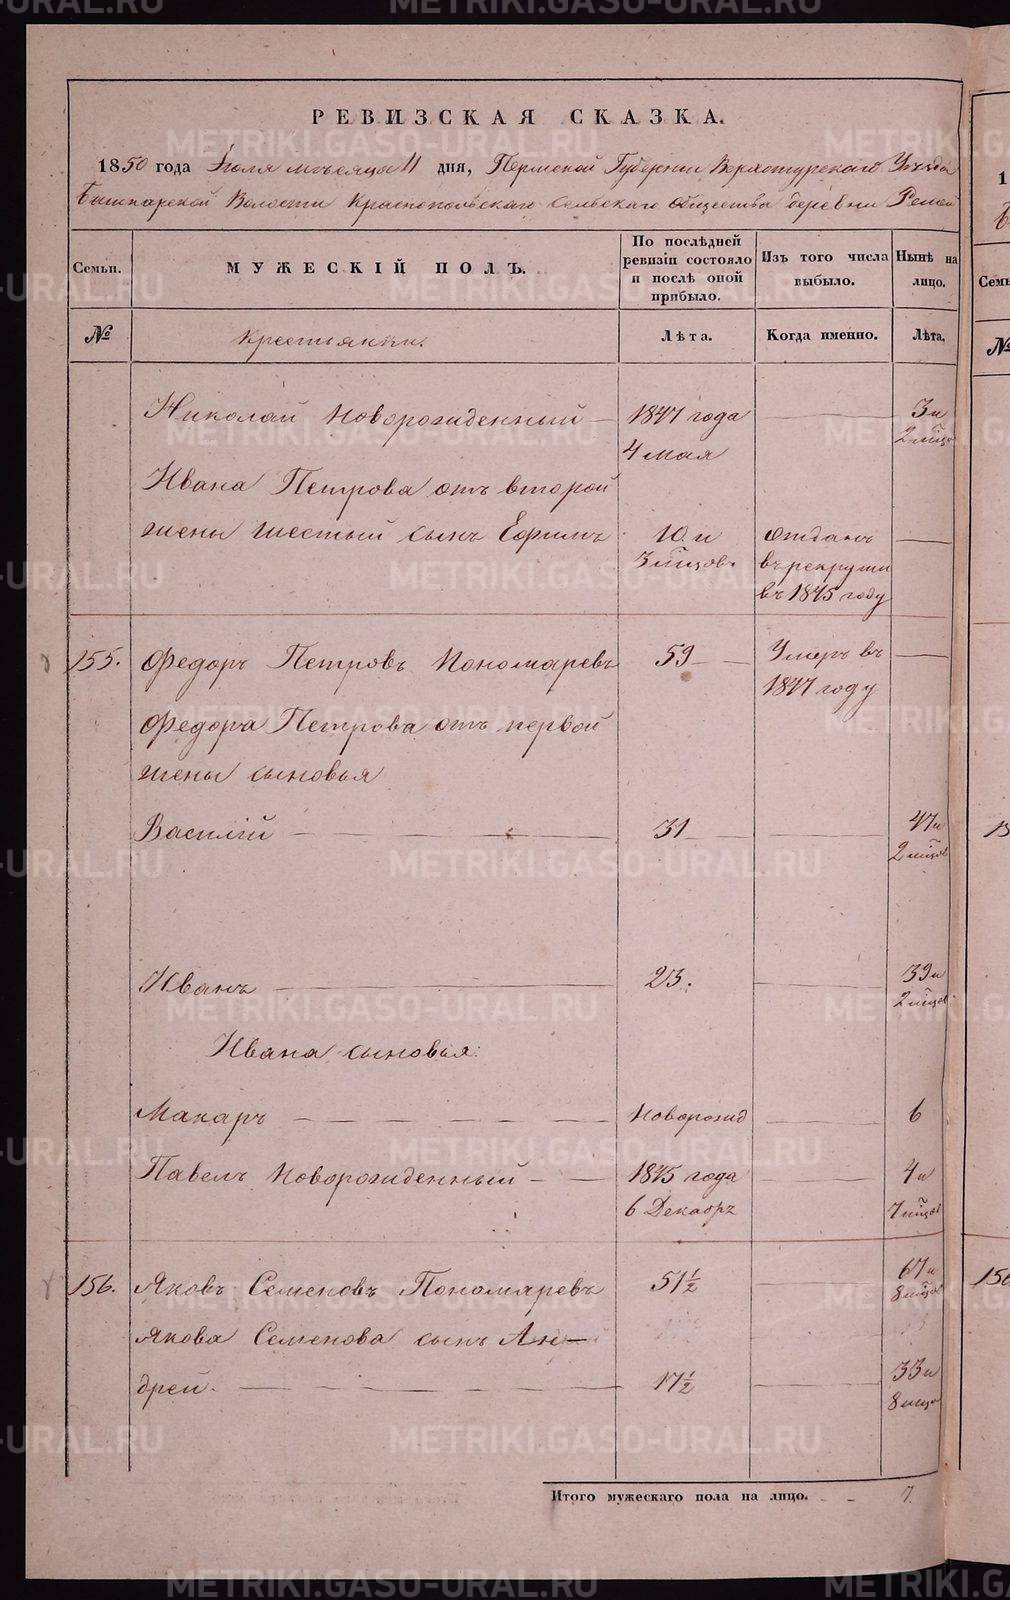 РЕВИЗСКАЯ СКАЗКА.
1850 года Июля мѣсяца 11 дня, Пермской Губернии Верхотурскаго Уѣзда
Башкарской Волости Краснопольскаго сельскаго общества деревни
Семьи. МУЖЕСКІЙ ПОЛЪ. По послѣдней ревизіи состояло и послѣ оной прибыло. Изъ того числа выбыло. Нынѣ на лицо.
№ Крестьянки. Лѣта. Когда именно. Лѣта.
Николай Новорожденный 1847 года 3 и
4 мая 2 мѣц
Ивана Петрова отъ второй
жены шестый сынъ Ефимъ 10 и отданъ
3 мѣцовъ въ рекруты
въ 1845 году
155. Федоръ Петровъ Пономаревъ 59 Умеръ въ
1847 году
Федора Петрова отъ первой
жены сыновья
Василій 31 47 и
2 мѣцов
Иванъ 23. 39 и
2 мѣцов
Ивана сыновья:
Макаръ Новорожд 6
Павелъ Новорожденный 1845 года 4 и
6 Декабр 7 мѣцов
156. Яковъ Семеновъ Пономаревъ 51½ 67 и
8 мѣцов
Якова Семенова сынъ Ан-
дрей. 17½ 33 и
8 мѣцо
Итого мужескаго пола на лицо. 7.
1
Семь
№
15
156
METRIKI.GASO-URAL.RU